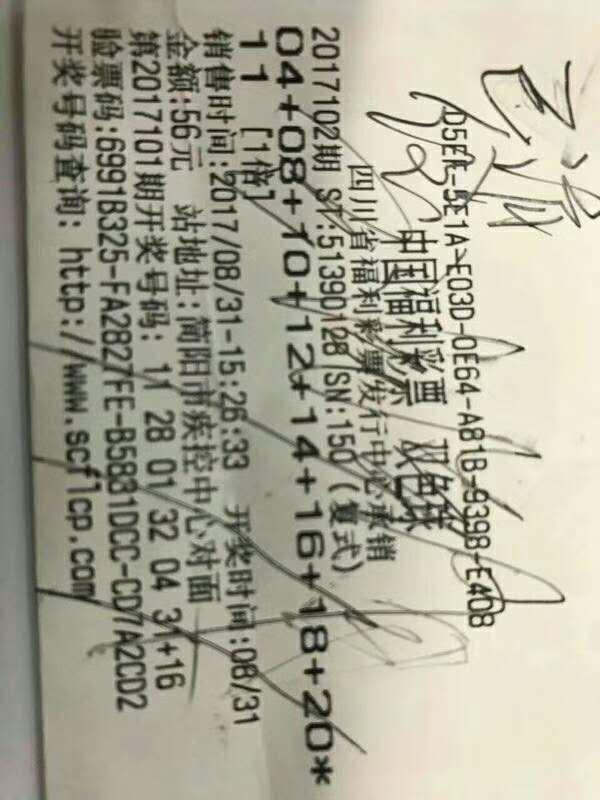 D5EF-5E1A-E03D-0E64-A81B-9398-E40B
中国福利彩票 双色球
四川省福利彩票发行中心承销
2017102期 ST:51390128 SN:150 (复式)
04+08+10+12+14+16+18+20*
11 [1倍]
销售时间:2017/08/31-15:26:33 开奖时间:08/31
金额:56元 站地址:简阳市疾控中心对面
第2017101期开奖号码: 11 28 01 32 04 31+16
验票码:6991B325-FA2827FE-B5831DCC-CD7A2CD2
开奖号码查询: http://www.scflcp.com